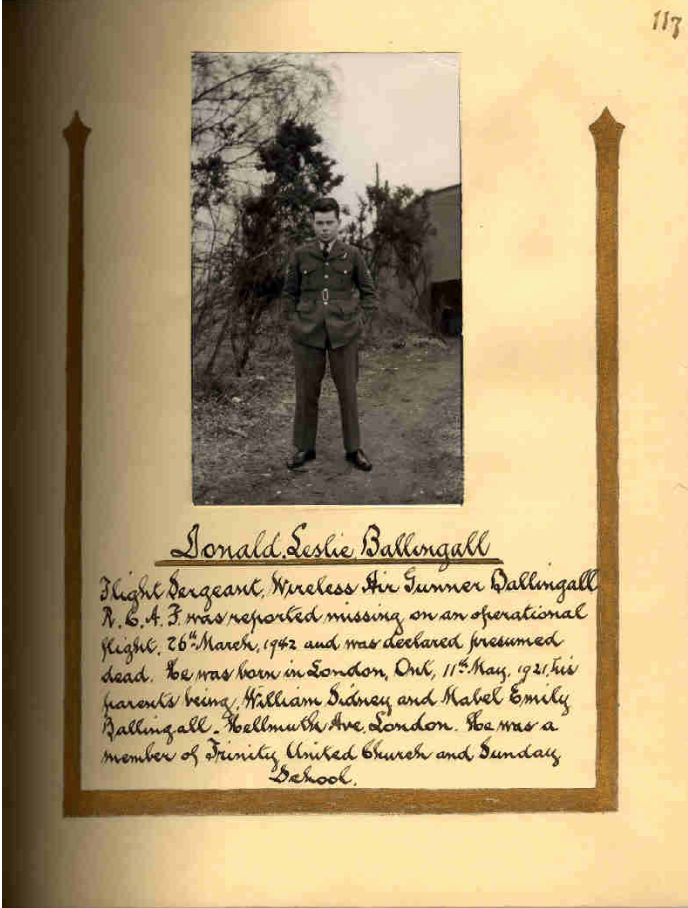 117
Donald Leslie Ballingall
Flight Sergeant, Wireless Air Gunner Ballingall
R.C.A.F. was reported missing on an operational
flight, 26th March, 1942 and was declared presumed
dead. He was born in London, Ont, 11th May, 1921, his
parents being, William Sidney and Mabel Emily
Ballingall - Hellmuth Ave, London. He was a
member of Trinity United Church and Sunday
School.